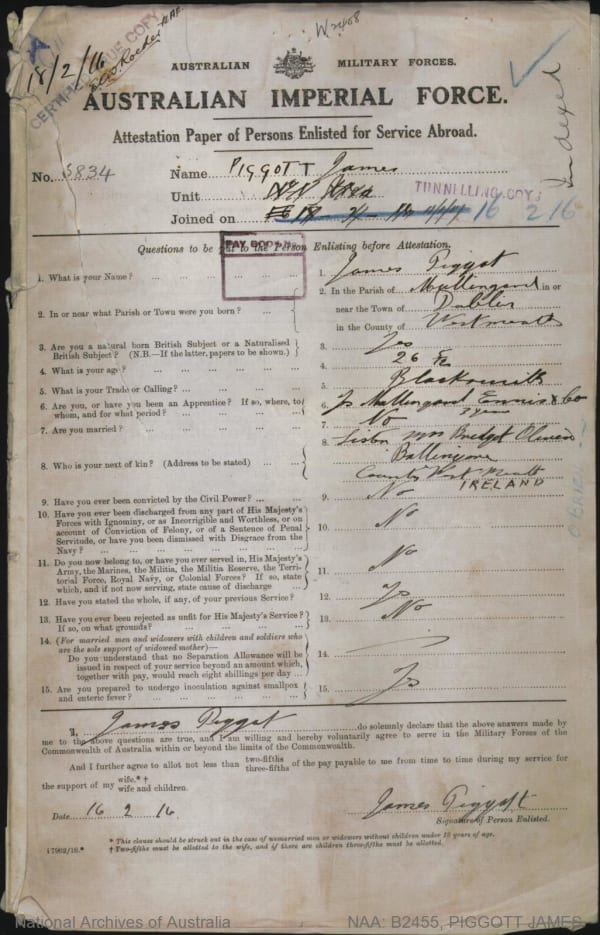 W2408
18/2/16
CERTIFIED TRUE COPY
AUSTRALIAN MILITARY FORCES.
AUSTRALIAN IMPERIAL FORCE.
Attestation Paper of Persons Enlisted for Service Abroad.
Indexed
No. 5834 Name PIGGOTT James
Unit TUNNELLING COYS
Joined on 16 2 16
PAY BOOK
Questions to be put to the Person Enlisting before Attestation.
1. What is your Name? ... 1. James Piggot
2. In or near what Parish or Town were you born? ... 2. In the Parish of Mullingard in or
near the Town of Dublin
in the County of Westmeath
3. Are you a natural born British Subject or a Naturalised
British Subject? (N.B.—If the latter, papers to be shown.) 3. Yes
4. What is your age? ... 4. 26
5. What is your Trade or Calling? ... 5. Blacksmith
6. Are you, or have you been an Apprentice? If so, where, to
whom, and for what period? ... 6. Mullingard Ennis & Co
7. Are you married? ... 7. No
8. Who is your next of kin? (Address to be stated) ... 8. Sister Mrs Bridget
County West Meath
IRELAND
9. Have you ever been convicted by the Civil Power? ... 9. No
10. Have you ever been discharged from any part of His Majesty's
Forces with Ignominy, or as Incorrigible and Worthless, or on
account of Conviction of Felony, or of a Sentence of Penal
Servitude, or have you been dismissed with Disgrace from the
Navy? ... 10. No
11. Do you now belong to, or have you ever served in, His Majesty's
Army, the Marines, the Militia, the Militia Reserve, the Terri-
torial Force, Royal Navy, or Colonial Forces? If so, state
which, and if not now serving, state cause of discharge ... 11. No
12. Have you stated the whole, if any, of your previous Service? 12. Yes
13. Have you ever been rejected as unfit for His Majesty's Service?
If so, on what grounds? ... 13. No
14. (For married men and widowers with children and soldiers who
are the sole support of widowed mother)—
Do you understand that no Separation Allowance will be
issued in respect of your service beyond an amount which,
together with pay, would reach eight shillings per day ... 14.
15. Are you prepared to undergo inoculation against smallpox
and enteric fever? ... 15. Yes
I, James Piggot do solemnly declare that the above answers made by
me to the above questions are true, and I am willing and hereby voluntarily agree to serve in the Military Forces of the
Commonwealth of Australia within or beyond the limits of the Commonwealth.
And I further agree to allot not less than two-fifths three-fifths of the pay payable to me from time to time during my service for
the support of my wife.*† wife and children.
Date 16 2 16. James Piggott
Signature of Person Enlisted.
* This clause should be struck out in the case of unmarried men or widowers without children under 18 years of age.
† Two-fifths must be allotted to the wife, and if there are children three-fifths must be allotted.
National Archives of Australia NAA: B2455, PIGGOTT JAMES